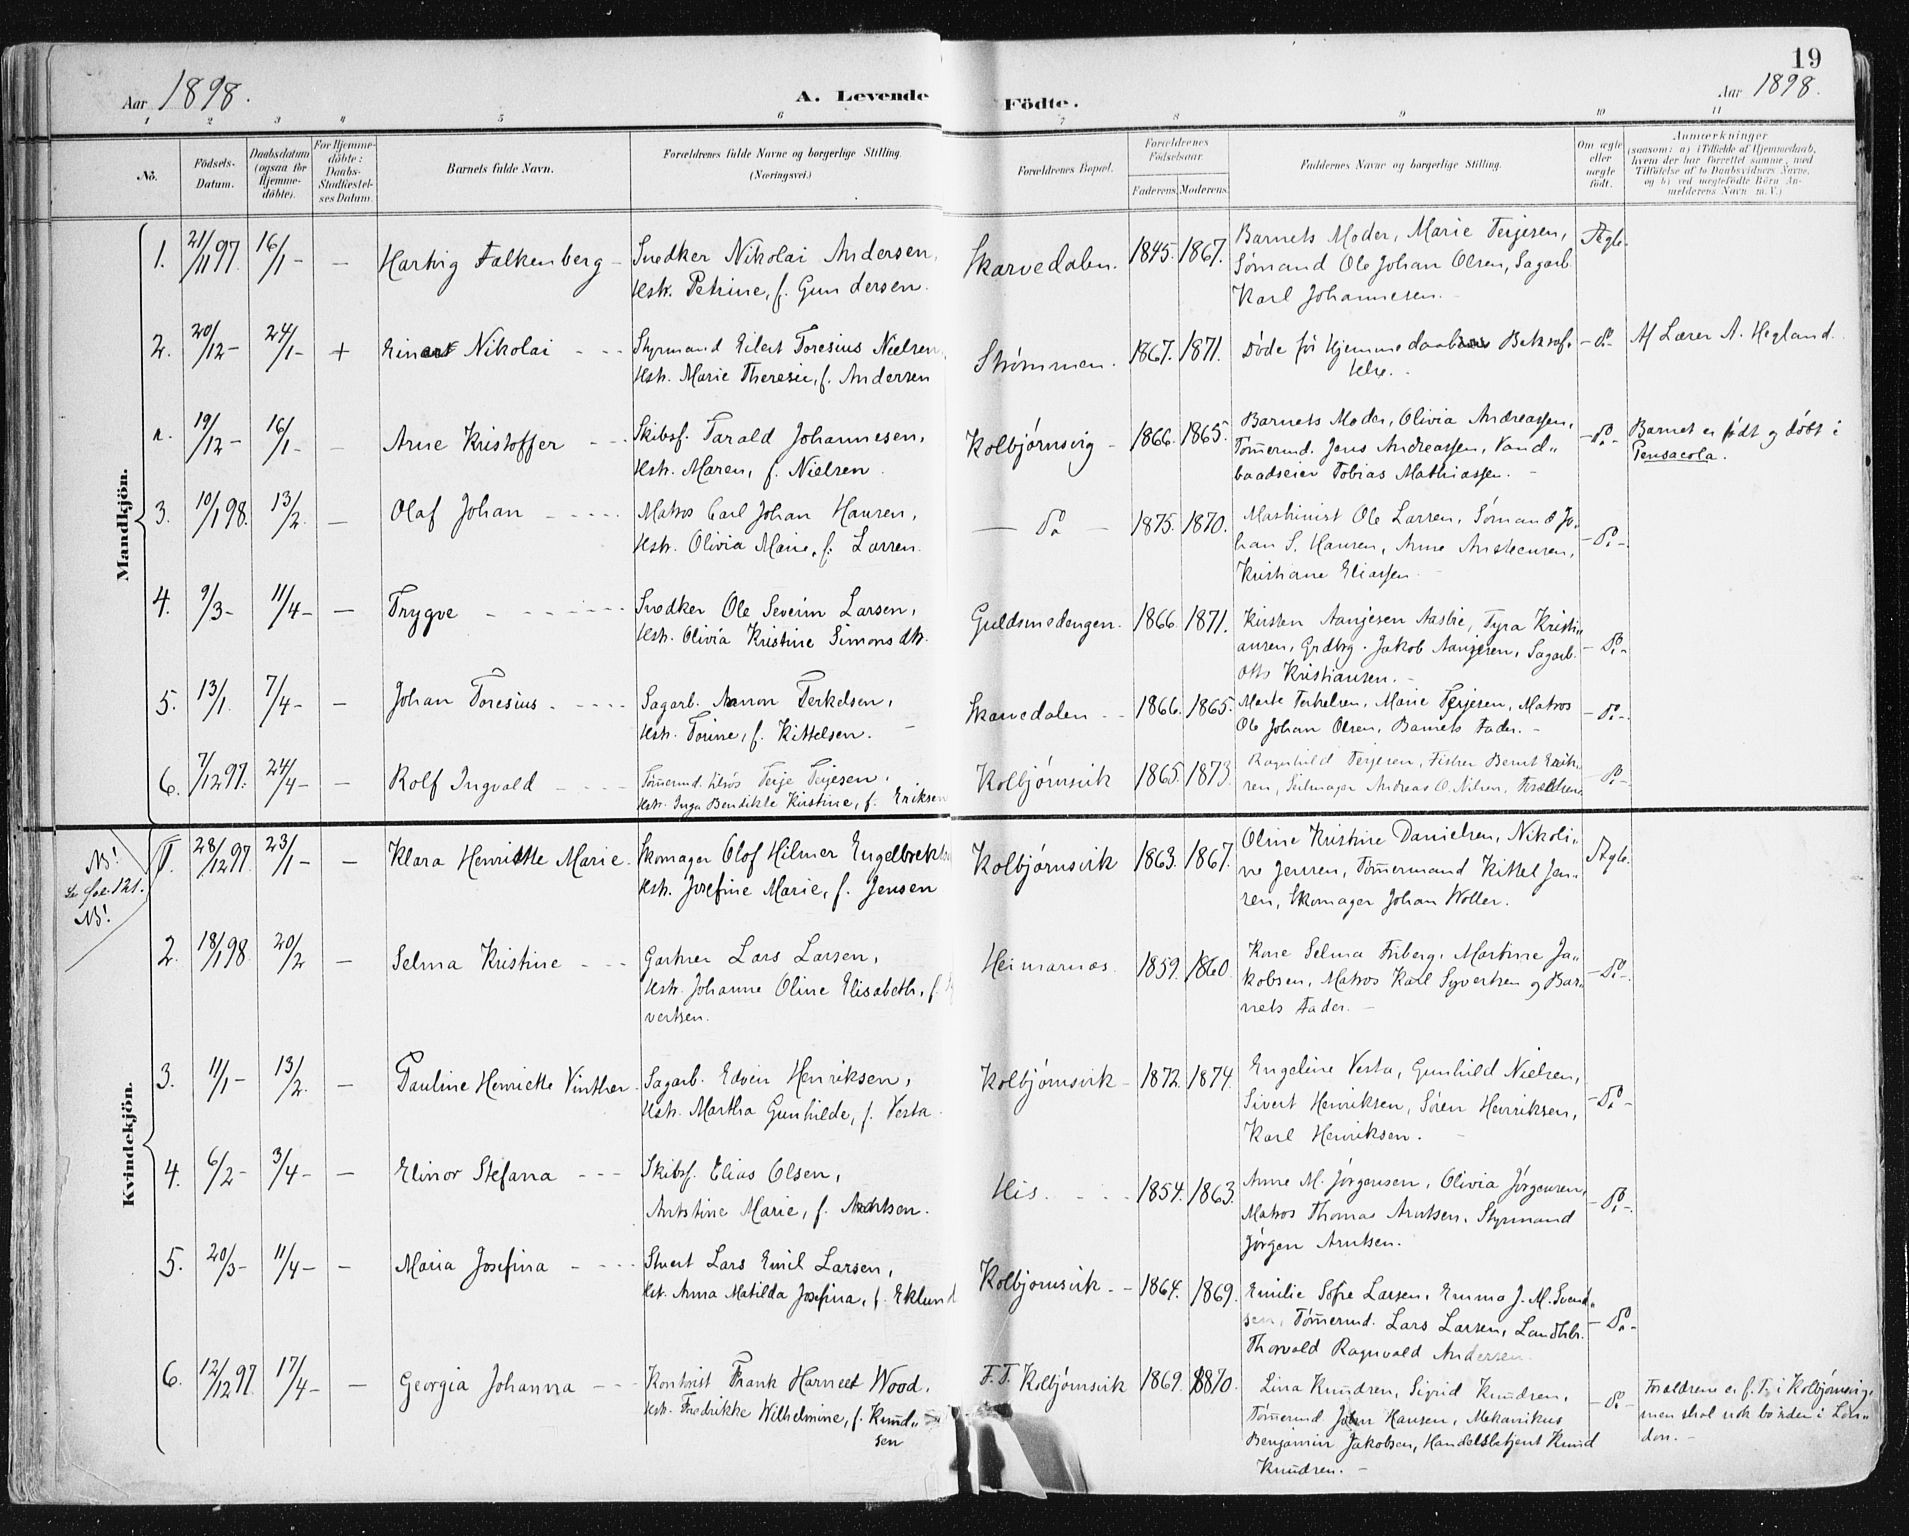 19
Aar 1898.
A. Levende Födte.
Aar 1898.
1 2 3 4 5 6 7 8 9 10 11
No.
Födsets-Datum.
Daabsdatum (ogsaa for Hjemmedöbte).
For Hjemmedöbte: Daabs-Stadfæstelses Datum.
Barnets fulde Navn.
Forældrenes fulde Navne og borgerlige Stilling. (Næringsvei.)
Forældrenes Bopæl.
Forældrenes Födselsaar.
Faderens. Moderens.
Faddernes Navne og borgerlige Stilling.
Om ægte eller uægte födt.
Anmærkninger
(saasom: a) i Tilfælde af Hjemmedaab, hvem der har forrettet samme, med Tilföielse af to Daabsvidners Navne, og b) ved uægtefödte Börn Anmelderens Navn m. V.)
Mandkjön.
1. 21/11 97. 16/1 - — Hartvig Falkenberg - Snedker Nikolai Andersen, Skarvedalen. 1845. 1867. Barnets Moder, Marie Terjesen, Ægte.
Hstr. Petrine, f. Gundersen. Sømand Ole Johan Olsen, Sagarb.
Karl Johannesen. -
2. 20/12 - 24/1 - + Einar Nikolai - - - Styrmand Eilert Toresius Nielsen, Strømmen. 1867. 1871. Døde før Hjemmedaabens Bekræf- - do - Af Lærer A. Hegland.
Hstr. Marie Theresie, f. Andersen telse. -
a. 19/12 - 16/1 - - Arne Kristoffer - - - Skibsf. Tarald Johannesen, Kolbjørnsvig - 1866. 1865. Barnets Moder, Olivia Andreassen, - do - Barnet er født og døbt i
Hstr. Maren, f. Nielsen. Tømermd. Jens Andreassen, Vand- Pensacola.
baadseier Tobias Mathiassen. -
3. 10/1 98. 13/2. — Olaf Johan - - - - Matros Carl Johan Hansen, — do — 1875. 1870. Maskinist Ole Larsen, Sømand Jo- - do -
Hstr. Olivia Marie, f. Larsen. han S. Hansen, Anne
Kristiane Eliassen
4. 9/3 - 11/4 - — Trygve - - - - - Snedker Ole Severin Larsen, Guldsmedengen. 1866. 1871. Kirsten Aanjesen Aasbie, Tyra Kristi- - do -
Hstr. Olivia Kristine Simonsdtr. ansen, Grdbrg. Jakob Aanjesen, Sagarb.
Otto Kristiansen. -
5. 13/1 7/4 - - Johan Toresius - - - - Sagarb. Anron Terkelsen, Skarvedalen - - 1866. 1865. Marte Terkelsen, Marie Terjesen, Matros - do -
Hstr. Torine, f. Kittelsen. - Ole Johan Olsen, Barnets Fader. -
6. 7/12 97. 24/4 - — Rolf Ingvald - - - - Tømermd. Terje Terjesen, Kolbjørnsvik 1865. 1873. Ragnhild Terjesen, Fisker Bernt Erik- - do -
Hstr. Inga Bendikte Kirstine, f. Eriksen sen, Seilmager Andreas O. Nilsen, Forældrene
Kvindekjön.
NB!
Se fol. 121.
NB!
1. 28/12 97. 23/1 - — Klara Henriette Marie. Skomager Olof Hilmer Engelbrekts Kolbjørnsvik 1863. 1867. Oline Kristine Danielsen, Nikoli- Ægte.
Hstr. Josefine Marie, f. Jensen ne Jensen, Tømermand Kittel Jen-
sen, Skomager Johan Woller.
2. 18/1 98. 20/2 — Selma Kristine - - - Gartner Lars Larsen, Heimarnæs. 1859. 1860. Kone Selma Friberg, Martine Ja- - do -
Hstr. Johanne Oline Elisabeth, f. kobsen, Matros Karl Syvertsen og Bar-
vertsen. nets Fader. -
3. 11/1 - 13/2. — Pauline Henriette Vinther - Sagarb. Edvin Henriksen, Kolbjørnsvik - 1872. 1874. Engeline Vesta, Gunhild Nielsen, - do -
Hstr. Martha Gunhilde, f. Vesta. Sivert Henriksen, Søren Henriksen,
Karl Henriksen. -
4. 6/2 - 3/4 - — Elinor Stefana - - - Skibsf. Elias Olsen, His. - - - 1854. 1863. Anne M. Jørgensen, Olivia Jørgensen, - do -
Marie, f. Arntsen. Matros Thomas Arntsen, Styrmand
Jørgen Arntsen.
5. 20/3 - 11/4 - - Maria Josefina - - - Stuert Lars Emil Larsen, Kolbjørnsvik - - 1864. 1869. Emilie Sofie Larsen, Emma J. M. Svend- - do -
Hst. Anna Matilda Josefina, f. Eklund sen, Tømermd. Lars Larsen, Landhlr.
Thorvald Ragnvald Andersen.
6. 12/12 97. 17/4 - — Georgia Johanna - - - Kontorist Frank Harneet Wood, F. T. Kolbjørnsvik 1869. 1870. Lina Knudsen, Sigrid Knudsen, - do - Forældrene er f. T. i Kolbjørnsvig,
Hstr. Fredrikke Wilhelmine, f. Knud- Tømermd John Hansen, Mekanikus men skal nok bo inden i Lon-
sen Benjamin Jakobsen, Handelsbetjent Knud don. -
Knudsen. -